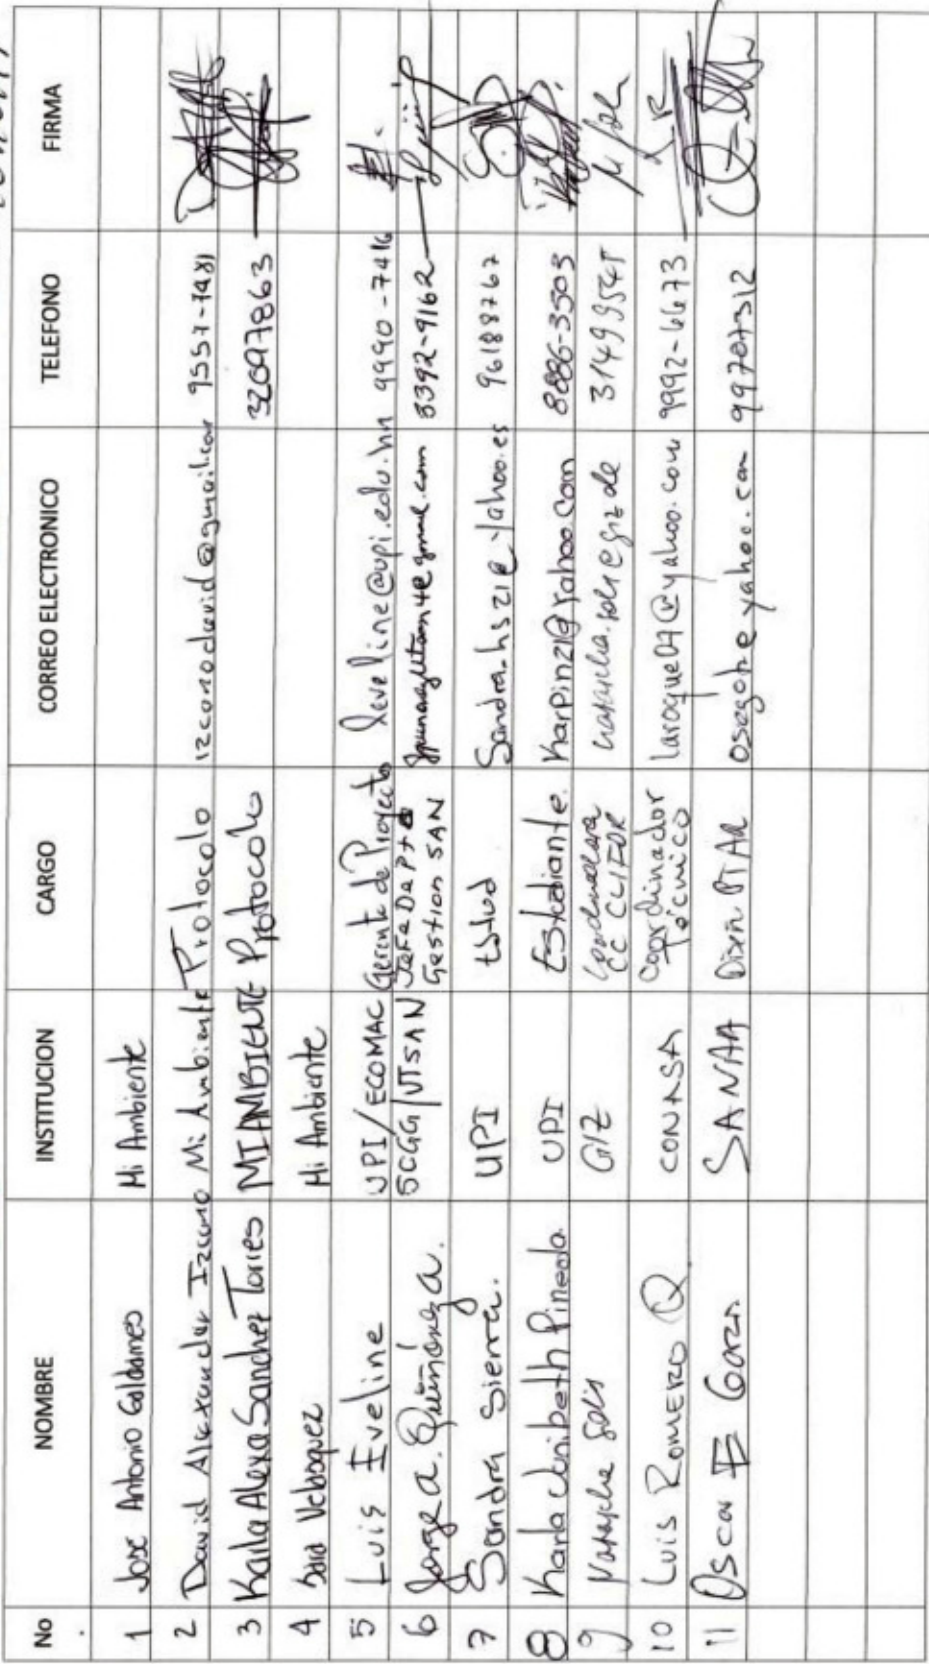 No NOMBRE INSTITUCION CARGO CORREO ELECTRONICO TELEFONO FIRMA
1 Jose Antonio Galdamez Mi Ambiente
2 David Alexander Izcano Mi Ambiente Protocolo izcanodavid@gmail.com 9557-7481
3 Karla Alexa Sanchez Torres MIAMBIENTE Protocolo 32097863
4 Said Velasquez Mi Ambiente
5 Luis Eveline UPI/ECOMAC Gerente de Proyecto leveline@upi.edu.hn 9990-7416
6 Jorge A. Quiñónez A. SCGG/UTSAN Jefe Depto
Gestion SAN 8392-9162
7 Sandra Sierra. UPI Sandra_hs21@yahoo.es 96188767
8 Karla Pineda UPI Estudiante. Karpin21@yahoo.com 8886-3503
9 Solis GIZ Coordinadora
CC CLIFOR
10 Luis ROMERO Q. CONASA Coordinador
Técnico laroque07@yahoo.com 9992-6673
11 Oscar SANAA PTAR osegohe yahoo.com 99707312